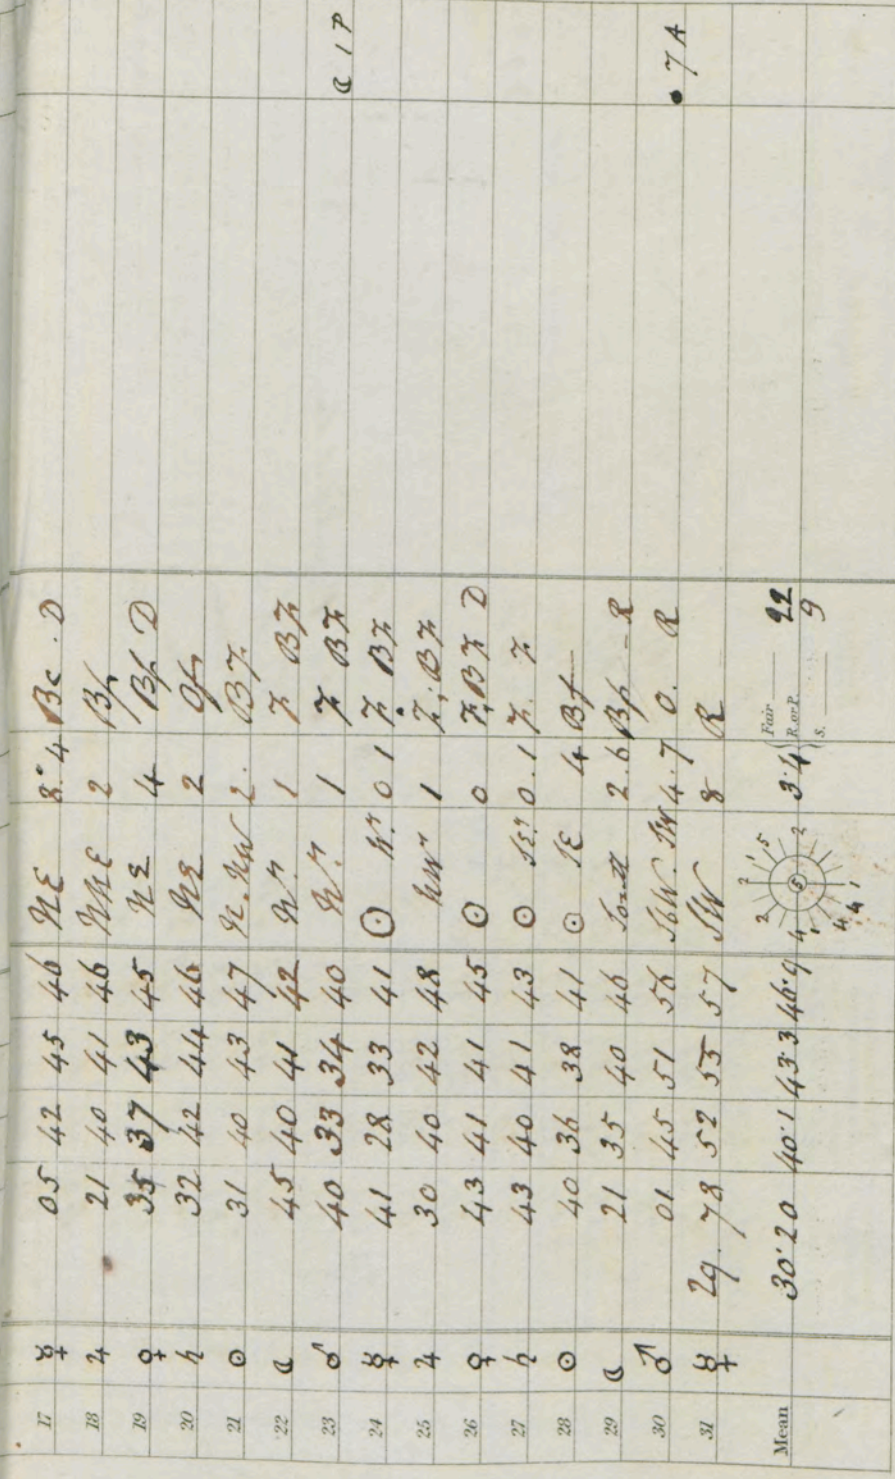 17 ☿ 05 42 45 46 NE 3. 4 Bc . D
18 ♃ 21 40 41 46 NNE 2 Bf
19 ♀ 35 37 43 45 NE 4 Bf D
20 ♄ 32 42 44 46 NE 2 Of
21 ☉ 31 40 43 47 N. NW 2. B F
22 ☾ 45 40 41 42 N.n 1 F BF
23 ♂ 40 33 34 40 N.n 1 F BF ☾ 1 P
24 ☿ 41 28 33 41 ☉ N.n 0 1 F. BF
25 ♃ 30 40 42 48 NWn 1 F; BF
26 ♀ 43 41 41 45 ☉ 0 F; BF D
27 ♄ 43 40 41 43 ☉ SE.n 0. 1 F. F
28 ☉ 40 36 38 41 ☉ SE 4 Bf
29 ☾ 21 35 40 46 2. 6 Bf - R
30 ♂ 01 45 51 56 SbW. SW 4. 7 O. R ● 7 A
31 ☿ 29. 78 52 55 57 SW 8 R
Mean 30·20 40·1 43·3 46·9 3·4 Fair 22
R. or P.
S. 9